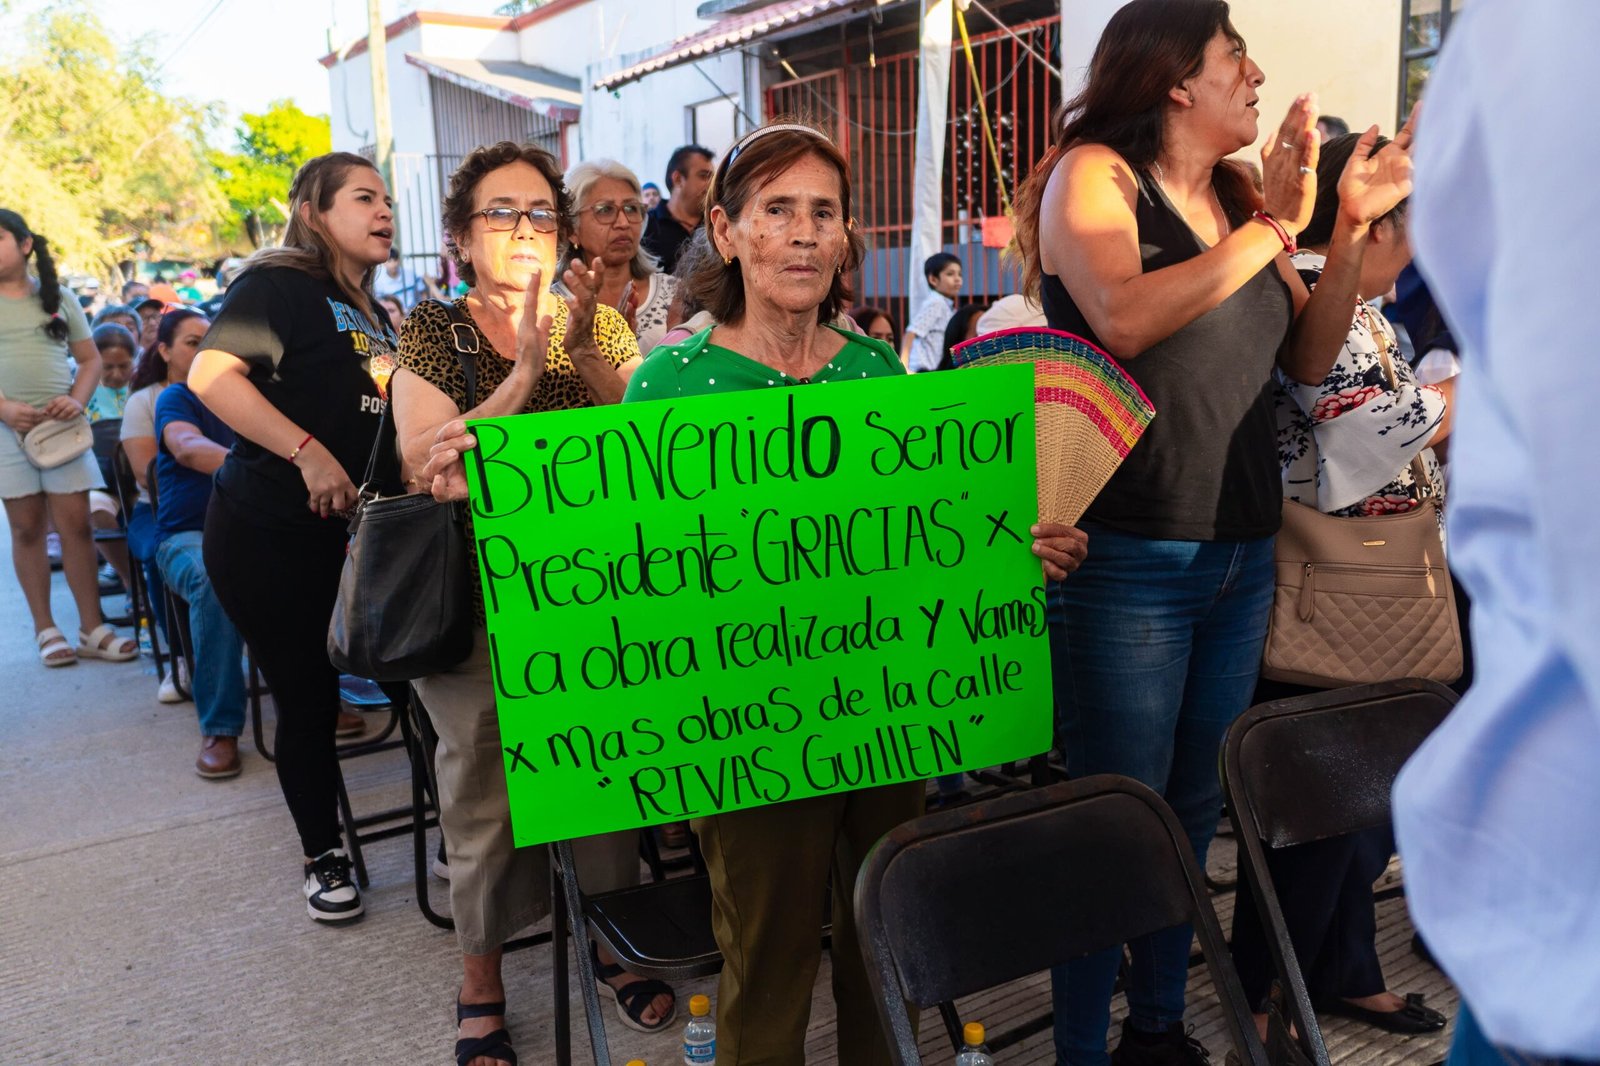 Bienvenido señor
Presidente "GRACIAS" x
La obra realizada y vamos
x mas obras de la calle
"RIVAS GuillEN"